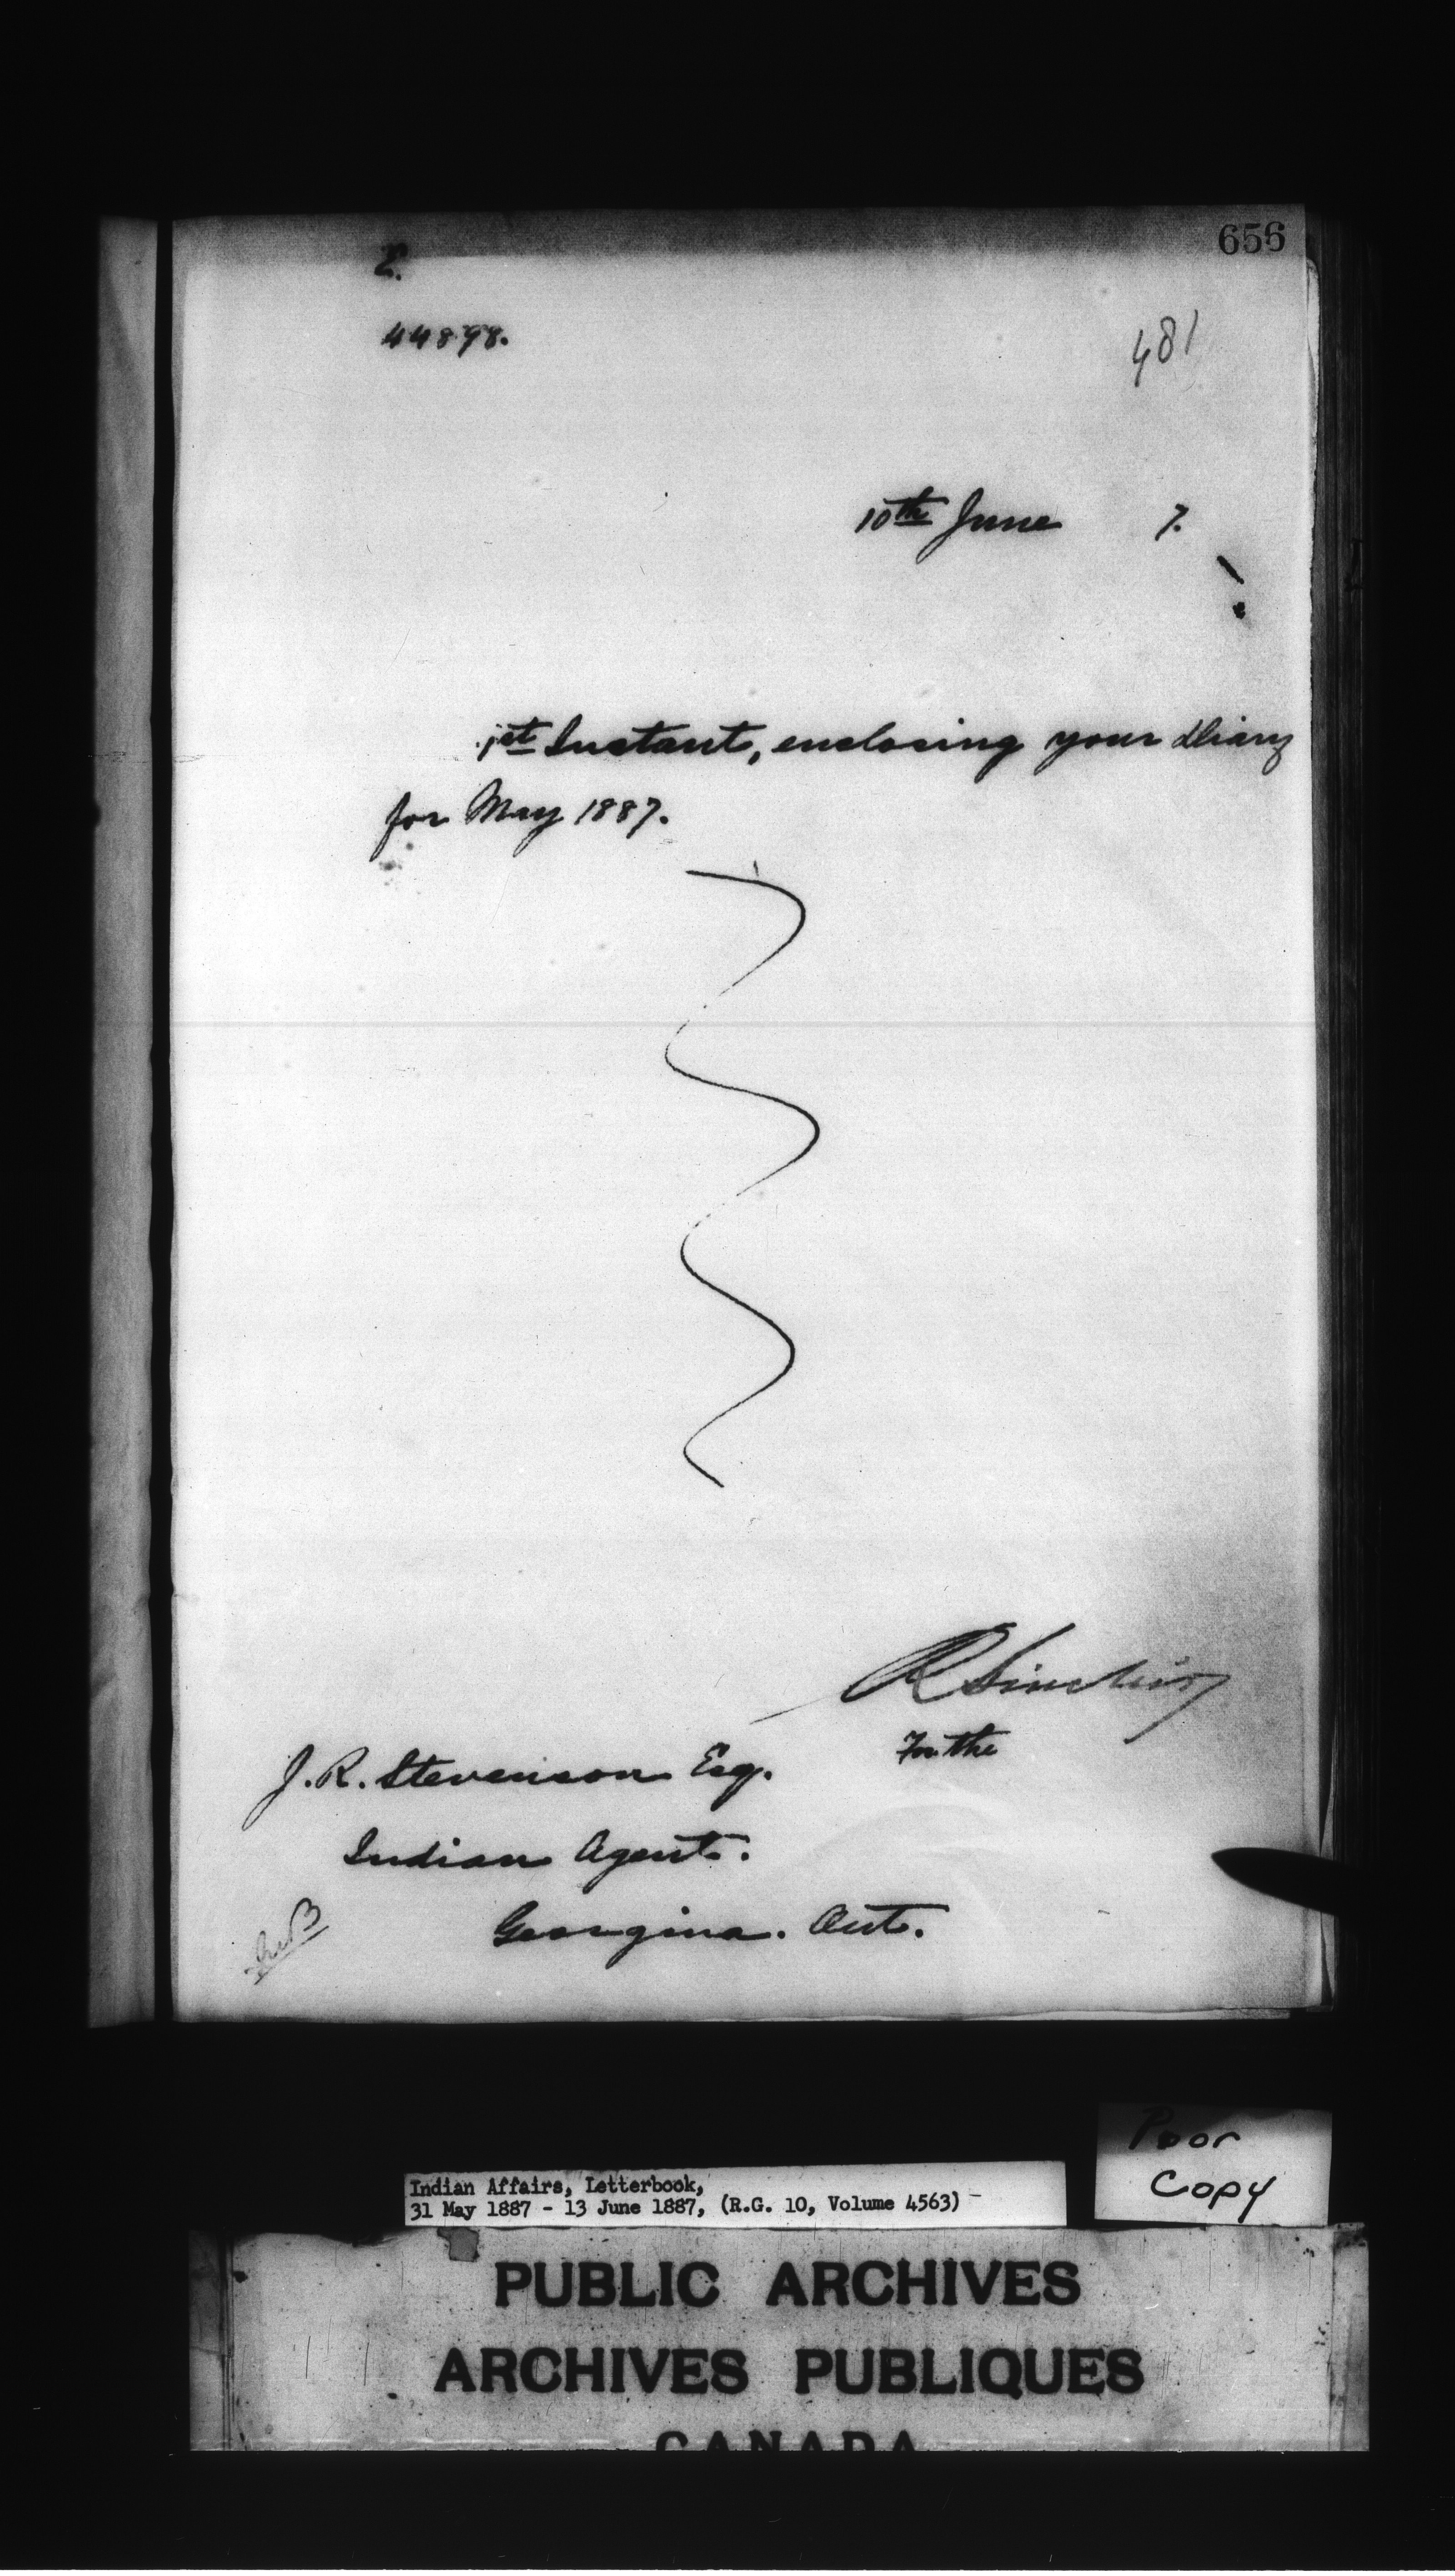 656
E.
44898.
481
10th June 7.
1st Instant, enclosing your Diary
for May 1887.
R Sinclair
For the
J. R. Stevenson Esq.
Indian Agent.
Georgina. Ont.
Poor
Copy
Indian Affairs, Letterbook,
31 May 1887 - 13 June 1887, (R.G. 10, Volume 4563)
PUBLIC ARCHIVES
ARCHIVES PUBLIQUES
CANADA